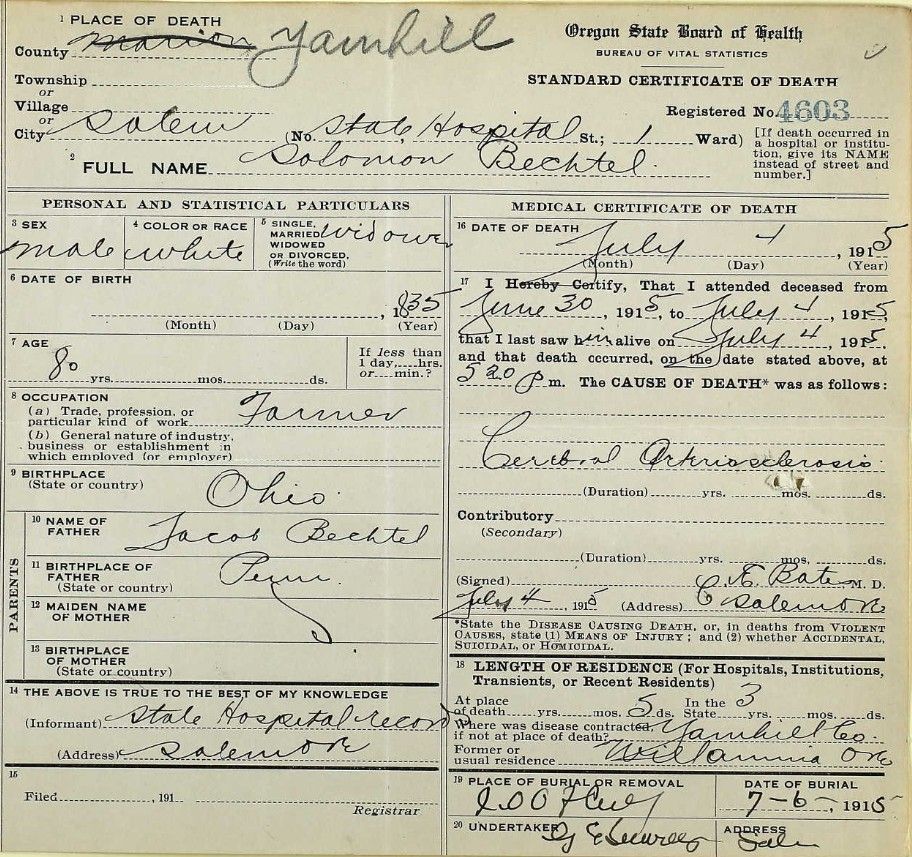 1 PLACE OF DEATH
County Marion Yamhill
Township
or
Village
or
City Salem (No. State Hospital St.; 1 Ward)
2 FULL NAME Solomon Bechtel
Oregon State Board of Health
BUREAU OF VITAL STATISTICS
STANDARD CERTIFICATE OF DEATH
Registered No. 4603
[If death occurred in
a hospital or institu-
tion, give its NAME
instead of street and
number.]
PERSONAL AND STATISTICAL PARTICULARS
3 SEX
male
4 COLOR OR RACE
white
5 SINGLE,
MARRIED
WIDOWED
OR DIVORCED.
(Write the word)
widower
6 DATE OF BIRTH
, 1835
(Month) (Day) (Year)
7 AGE
80 yrs. mos. ds.
If less than
1 day, hrs.
or min.?
8 OCCUPATION
(a) Trade, profession, or
particular kind of work Farmer
(b) General nature of industry,
business or establishment in
which employed (or employer)
9 BIRTHPLACE
(State or country)
Ohio
PARENTS
10 NAME OF
FATHER
Jacob Bechtel
11 BIRTHPLACE OF
FATHER
(State or country)
Penn.
12 MAIDEN NAME
OF MOTHER
13 BIRTHPLACE
OF MOTHER
(State or country)
14 THE ABOVE IS TRUE TO THE BEST OF MY KNOWLEDGE
(Informant) State Hospital records
(Address) Salem Or
15
Filed , 191
Registrar
MEDICAL CERTIFICATE OF DEATH
16 DATE OF DEATH
July 4, 1915
(Month) (Day) (Year)
17 I Hereby Certify, That I attended deceased from
June 30, 1915, to July 4, 1915,
that I last saw him alive on July 4, 1915,
and that death occurred, on the date stated above, at
5 20 P m. The CAUSE OF DEATH* was as follows:
Cerebral Arteriosclerosis
(Duration) yrs. mos. ds.
Contributory
(Secondary)
(Duration) yrs. mos. ds.
(Signed) C. E. Bates M. D.
July 4, 1915 (Address) Salem Ore
*State the DISEASE CAUSING DEATH, or, in deaths from VIOLENT
CAUSES, state (1) MEANS OF INJURY; and (2) whether ACCIDENTAL,
SUICIDAL, or HOMICIDAL.
18 LENGTH OF RESIDENCE (For Hospitals, Institutions,
Transients, or Recent Residents)
At place
of death yrs. mos. 5 ds. In the
State 3 yrs. mos. ds.
Where was disease contracted,
if not at place of death? Yamhill Co.
Former or
usual residence Willamina Ore
19 PLACE OF BURIAL OR REMOVAL
I O O F Cem
DATE OF BURIAL
7-6-, 1915
20 UNDERTAKER
ADDRESS
Salem